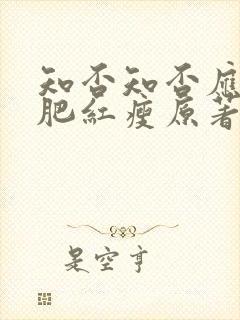 知否知否應
肥紅瘦原著
是空亨